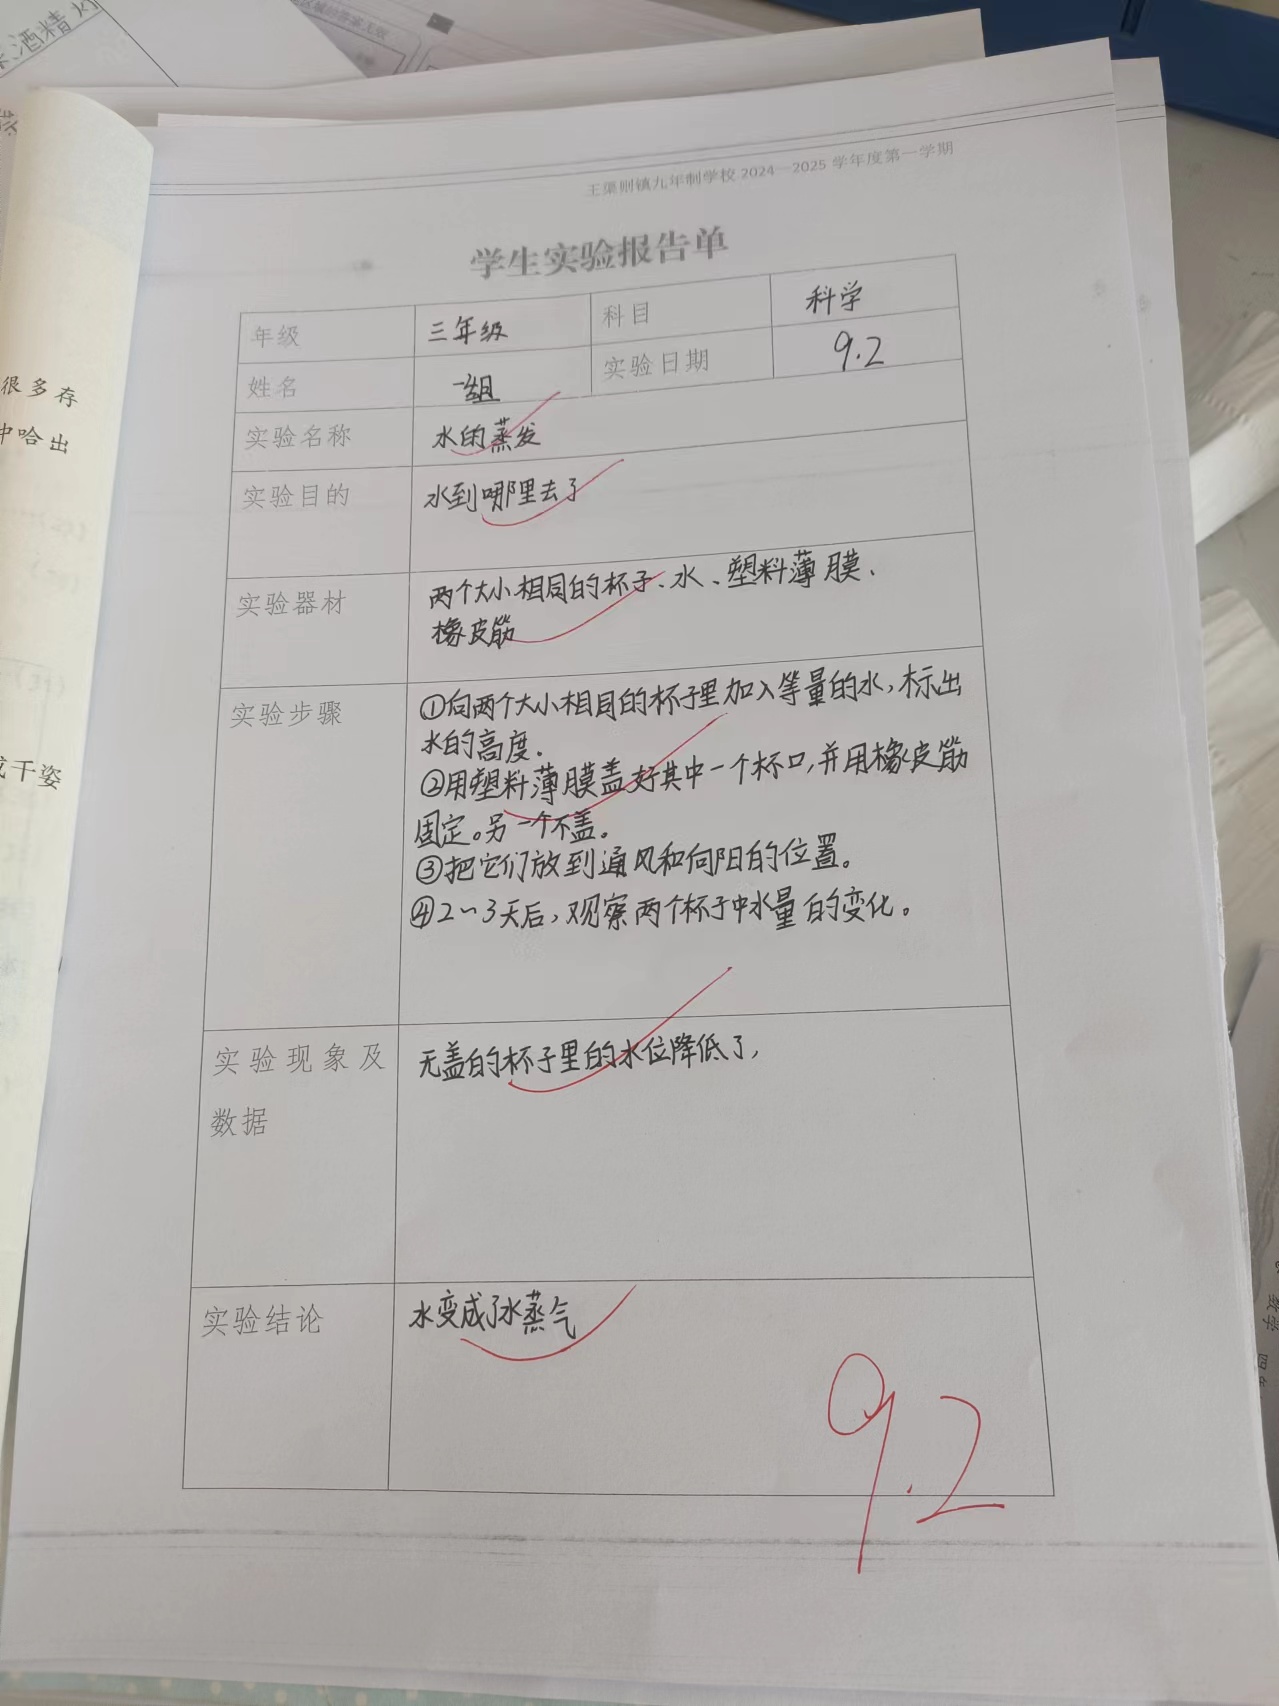 酒精灯
很多存
中哈出
成千姿
王渠则镇九年制学校 2024—2025 学年度第一学期
学生实验报告单
年级 三年级 科目 科学
姓名 一组 实验日期 9.2
实验名称 水的蒸发
实验目的 水到哪里去了
实验器材 两个大小相同的杯子、水、塑料薄膜、
橡皮筋
实验步骤 ①向两个大小相同的杯子里加入等量的水,标出
水的高度.
②用塑料薄膜盖好其中一个杯口,并用橡皮筋
固定。另一个不盖。
③把它们放到通风和向阳的位置。
④2~3天后,观察两个杯子中水量的变化。
实验现象及 无盖的杯子里的水位降低了,
数据
实验结论 水变成了水蒸气
9.2
数学